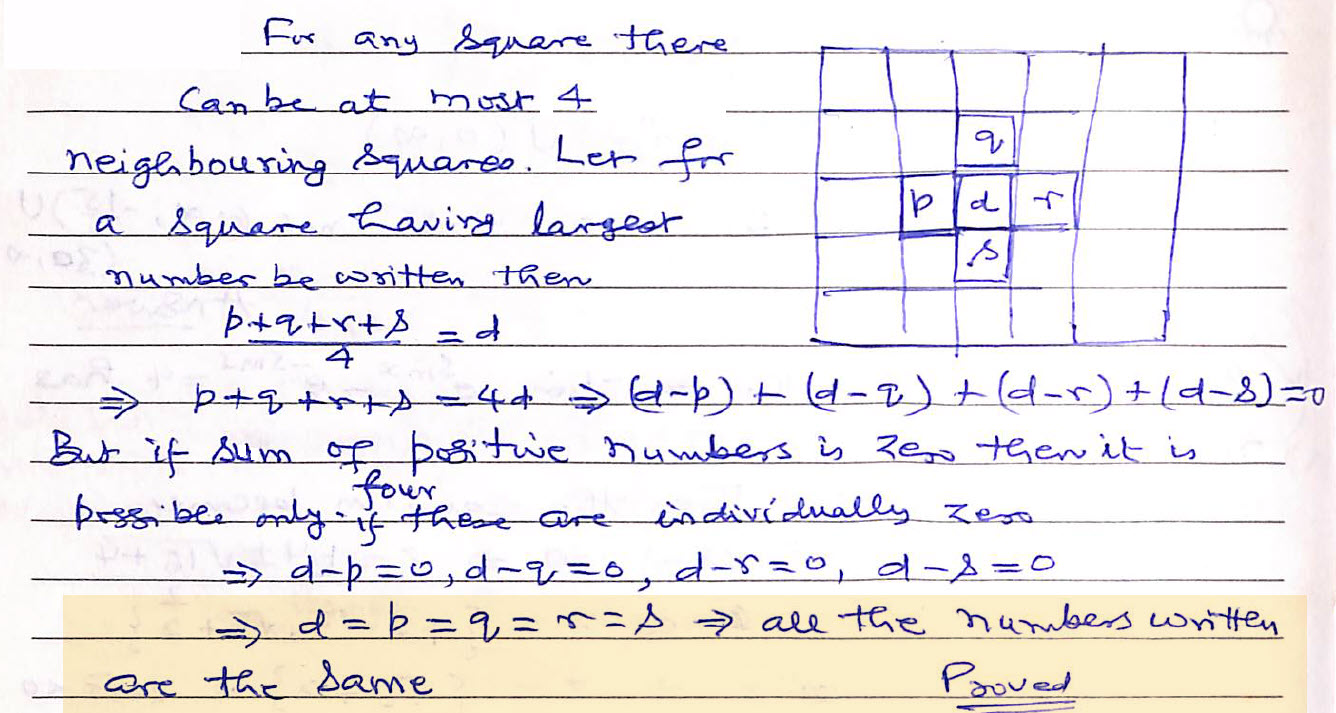 For any square there
Can be at most 4
neighbouring squares. Let for
a square having largest
number be written then
(p+q+r+s)/4 = d
⇒ p+q+r+s = 4d ⇒ (d-p) + (d-q) + (d-r) + (d-s) = 0
But if sum of positive numbers is zero then it is
possible only if these four are individually zero
⇒ d-p=0, d-q=0, d-r=0, d-s=0
⇒ d=p=q=r=s ⇒ all the numbers written
are the same
Proved
q
p d r
s